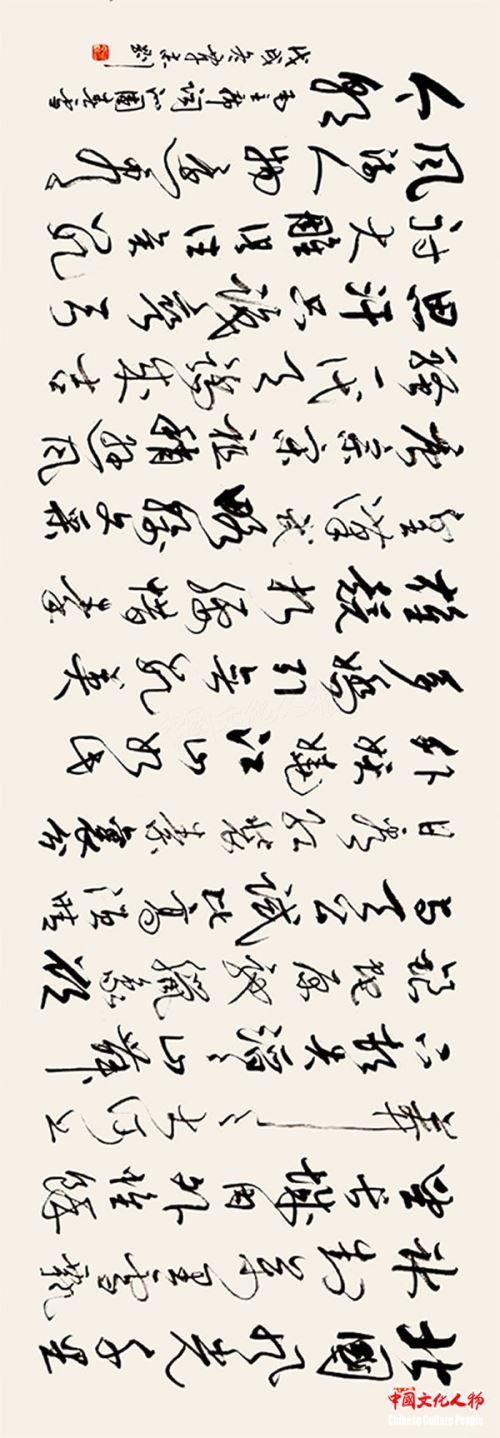 北國风光千里
冰封萬里雪飘
望长城内外惟馀
莽〻大河上
下顿失滔〻山舞
银蛇原驰蜡象欲
与天公试比高须晴
日看红装素裹分
外妖娆江山如此
多娇引无数英
雄竞折腰惜秦
皇汉武略输文采
唐宗宋祖稍逊风
骚一代天骄成吉
思汗只识弯弓
射大雕俱往矣数
风流人物还看
今朝
毛主席词沁園春雪
戊戌冬
中國文化人物
Chinese Culture People